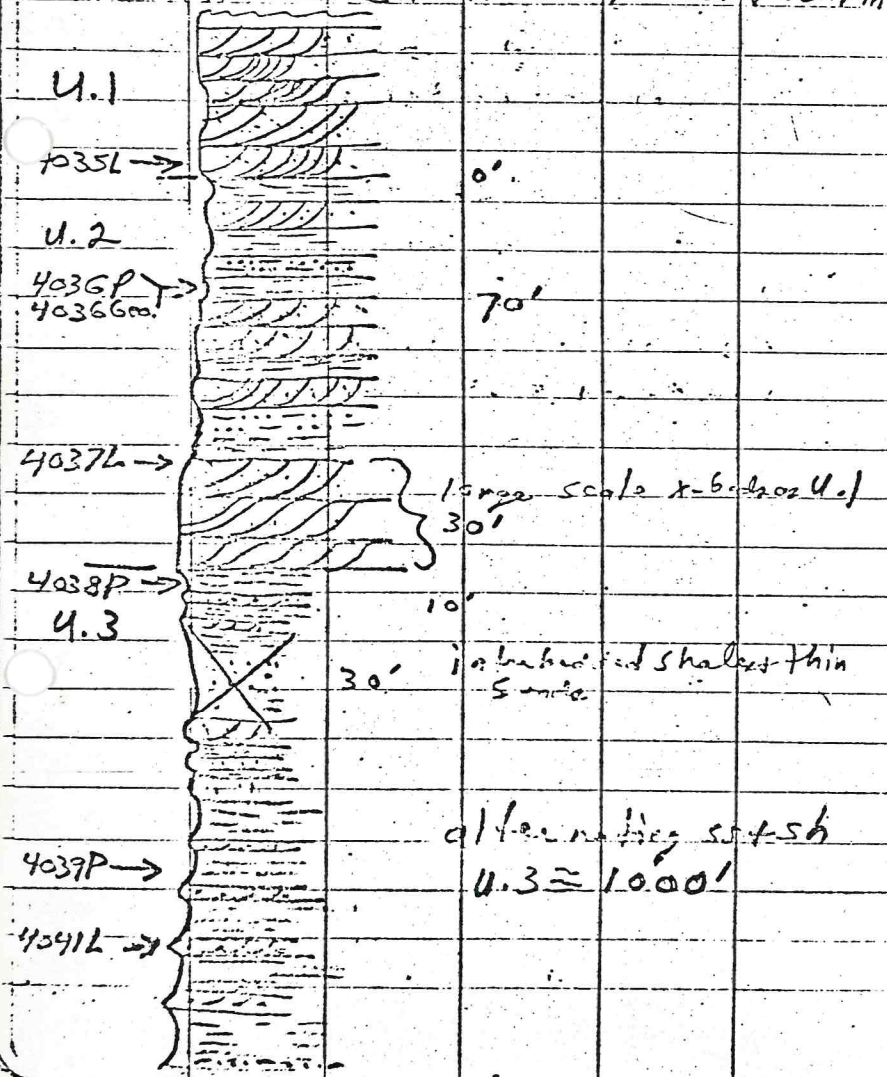 U.1
4035L
0'
U.2
4036P
4036Geo.
70'
4037L
large scale x-beds as U.1
30'
4038P
10'
U.3
interbedded shales + thin
30'
sands
alternating ss + sh
4039P
U.3 ≅ 1000'
4041L